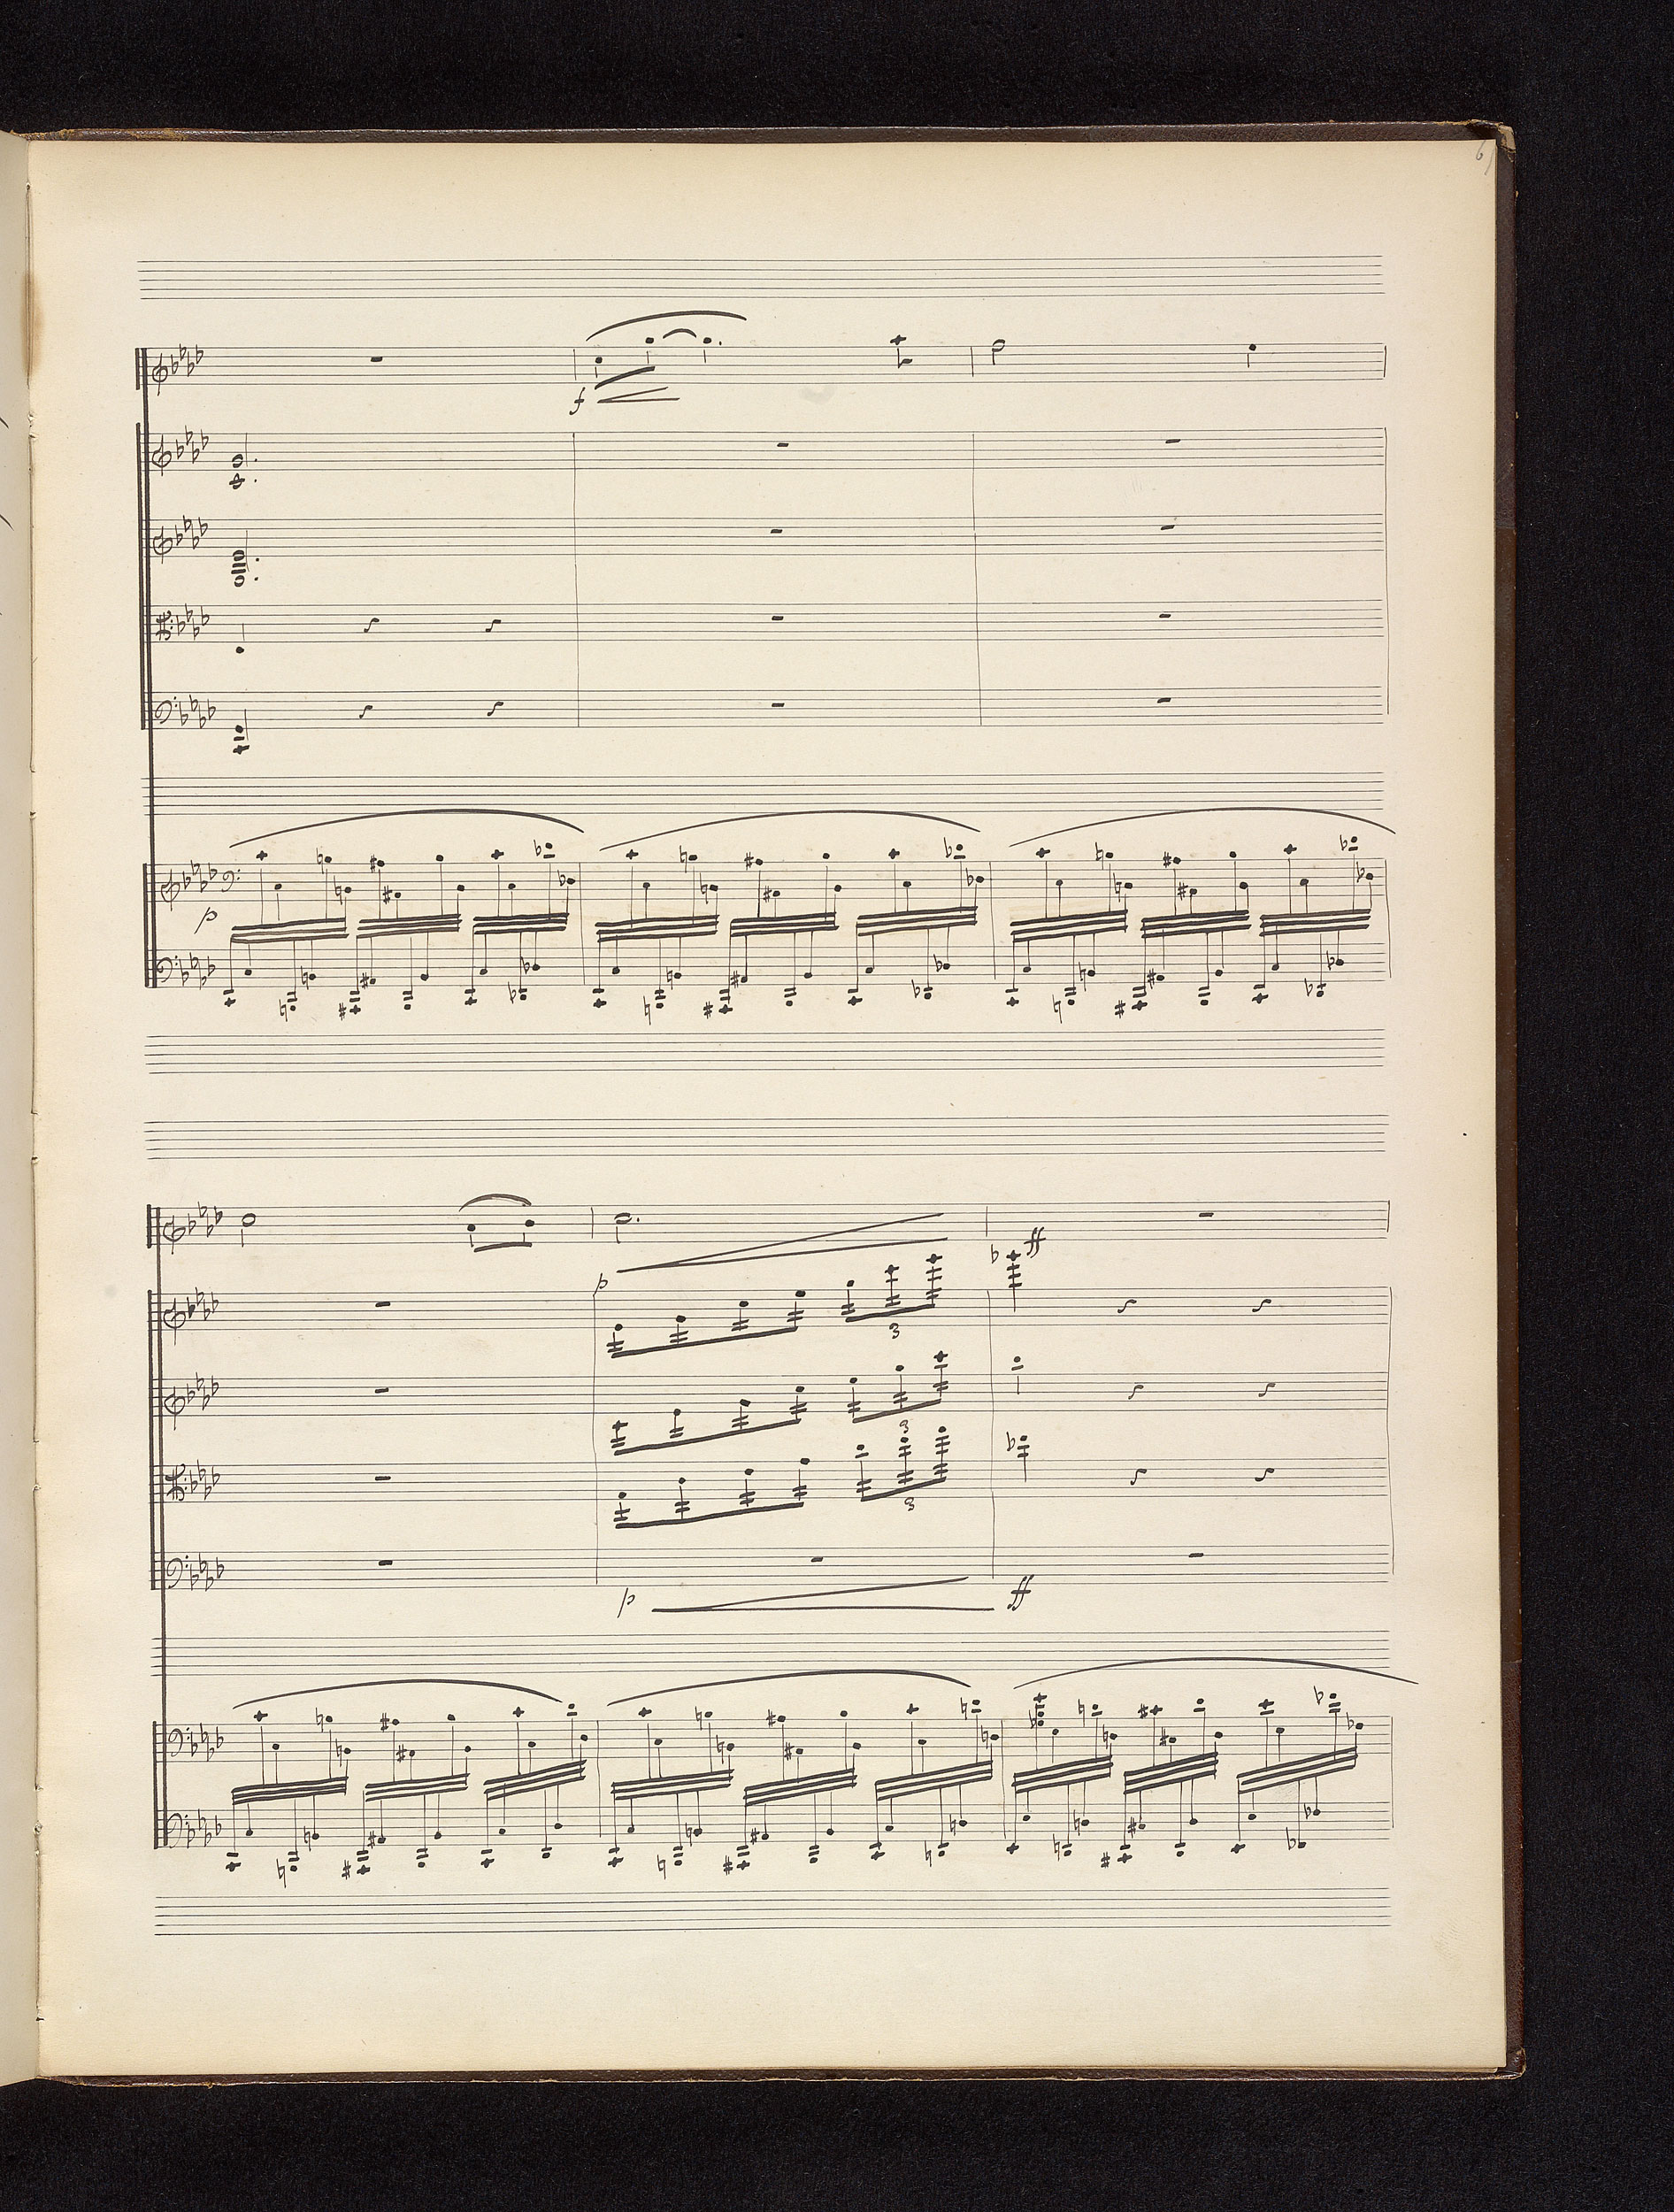 6)
f
p
p
3
3
3
ff
p
ff